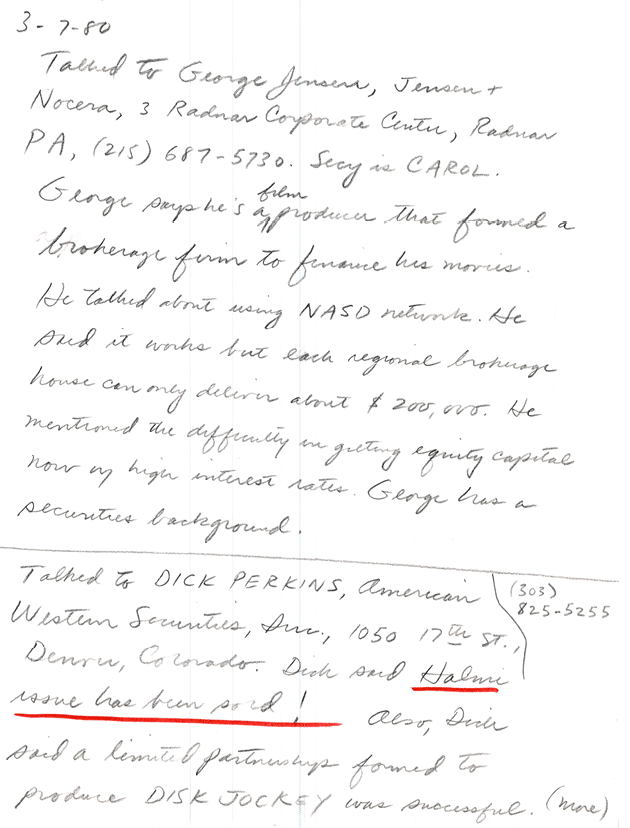 3-7-80
Talked to George Jensen, Jensen +
Nocera, 3 Radnar Corporate Center, Radnar
PA, (215) 687-5730. Secy is CAROL.
George says he's a film producer that formed a
brokerage firm to finance his movies.
He talked about using NASD network. He
said it works but each regional brokerage
house can only deliver about $200,000. He
mentioned the difficulty in getting equity capital
now w/ high interest rates. George has a
securities background.
Talked to DICK PERKINS, American
(303)
825-5255
Western Securities, Inc., 1050 17th St.,
Denver, Colorado. Dick said Halmi
issue has been sold!
Also, Dick
said a limited partnership formed to
produce DISK JOCKEY was successful. (more)